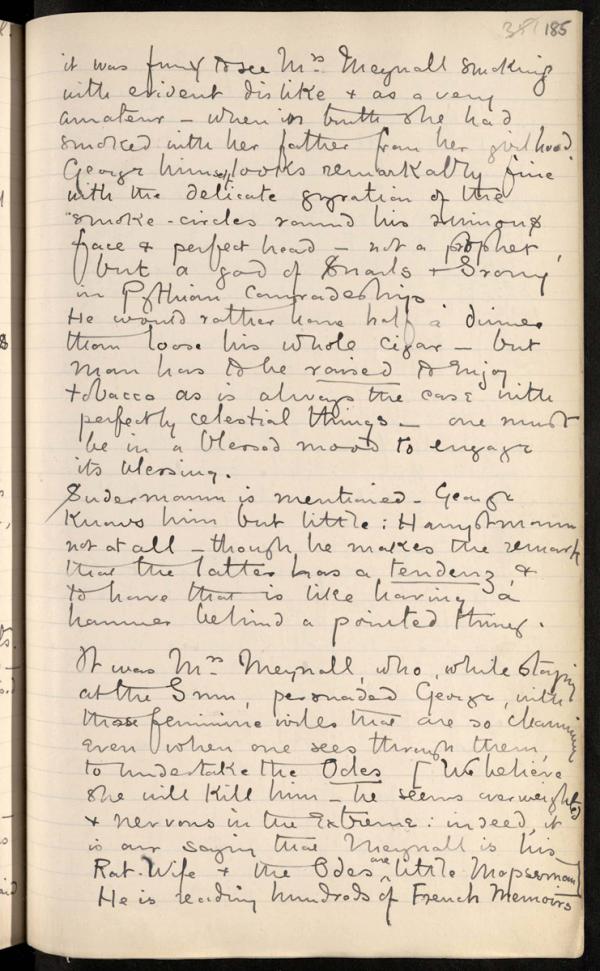 381 185
it was funny to see Mrs Meynall smoking
with evident dislike & as a very
amateur – when in truth she had
smoked with her father from her girlhood.
George himself looks remarkably fine
with the delicate gyration of the
smoke-circles round his
face & perfect head – not a prophet,
but a god of Snarls & Irony
in Pythian Comradeships
He would rather have half a dinner
than loose his whole cigar – but
man has to be raised to enjoy
tobacco as is always the case with
perfectly celestial things – one must
be in a blessed mood to engage
its blessing.
Sudermann is mentioned – George
knows him but little: Hauptmann
not at all – though he makes the remark
that the latter has a tendenz, &
to have that is like having a
hammer behind a pointed thing.
It was Mrs Meynall, who, while staying
at the Inn, persuaded George, with
those feminine wiles that are so charming
even when one sees through them,
to undertake the Odes [We believe
she will kill him – he seems overweighted
& nervous in the extreme: indeed, it
is our saying that Meynall is his
Rat-Wife & the Odes are little Mopsemann]
He is reading hundreds of French Memoirs